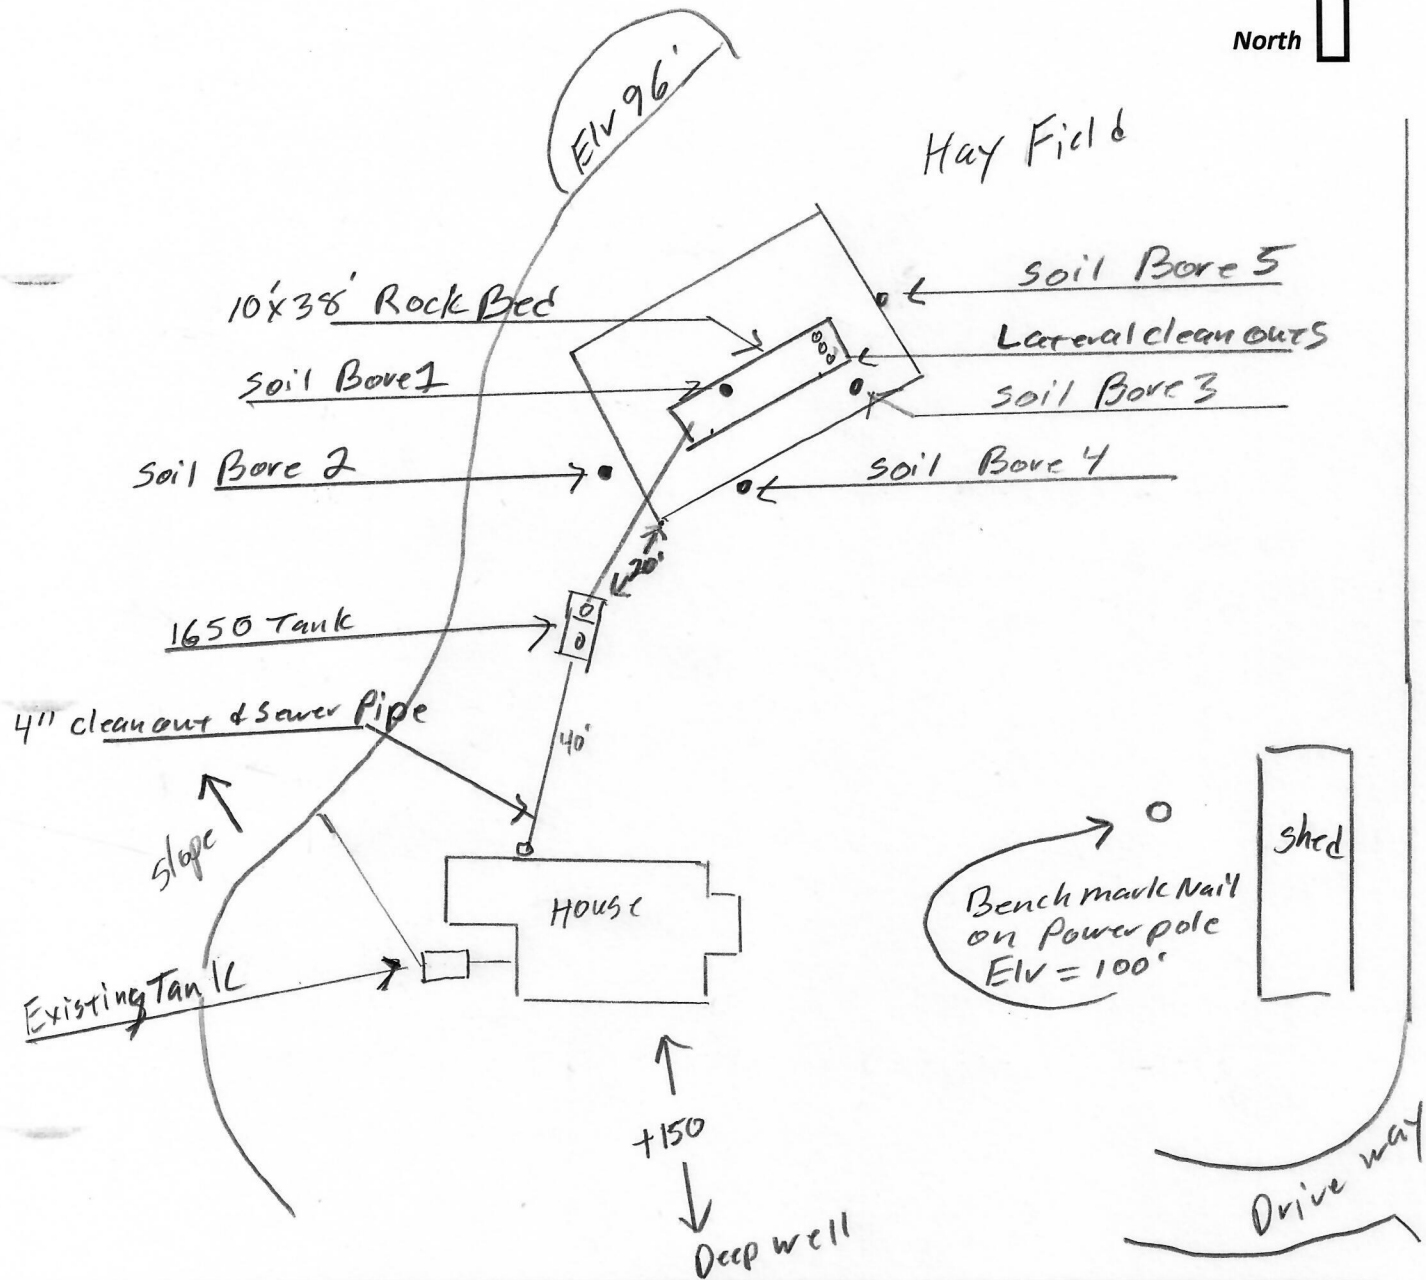 North
Elv 96'
Hay Field
Soil Bore 5
10'x38' Rock Bed
Lateral clean outs
Soil Bore 1
Soil Bore 3
Soil Bore 2
Soil Bore 4
20'
1650 Tank
4" clean out & Sewer Pipe
40'
Slope
Shed
House
Benchmark Nail
on Power pole
Elv = 100'
Existing Tank
+150
Deep well
Drive way